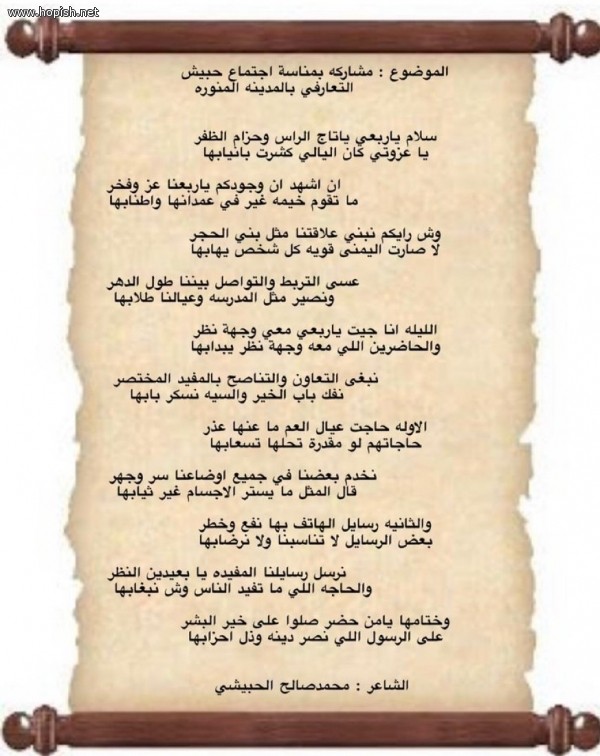 www.hopish.net
الموضوع : مشاركه بمناسة اجتماع حبيش
التعارفي بالمدينه المنوره
سلام ياربعي ياتاج الراس وحزام الظفر
يا عزوتي كان اليالي كشرت بانيابها
ان اشهد ان وجودكم ياربعنا عز وفخر
ما تقوم خيمه غير في عمدانها واطنابها
وش رايكم نبني علاقتنا مثل بني الحجر
لا صارت اليمنى قويه كل شخص يهابها
عسى التربط والتواصل بيننا طول الدهر
ونصير مثل المدرسه وعيالنا طلابها
الليله انا جيت ياربعي معي وجهة نظر
والحاضرين اللي معه وجهة نظر يبدابها
نبغى التعاون والتناصح بالمفيد المختصر
نفك باب الخير والسيه نسكر بابها
الاوله حاجت عيال العم ما عنها عذر
حاجاتهم لو مقدرة تحلها تسعابها
نخدم بعضنا في جميع اوضاعنا سر وجهر
قال المثل ما يستر الاجسام غير ثيابها
والثانيه رسايل الهاتف بها نفع وخطر
بعض الرسايل لا تناسبنا ولا نرضابها
نرسل رسايلنا المفيده يا بعيدين النظر
والحاجه اللي ما تفيد الناس وش نبغابها
وختامها يامن حضر صلوا على خير البشر
على الرسول اللي نصر دينه وذل احزابها
الشاعر : محمدصالح الحبيشي